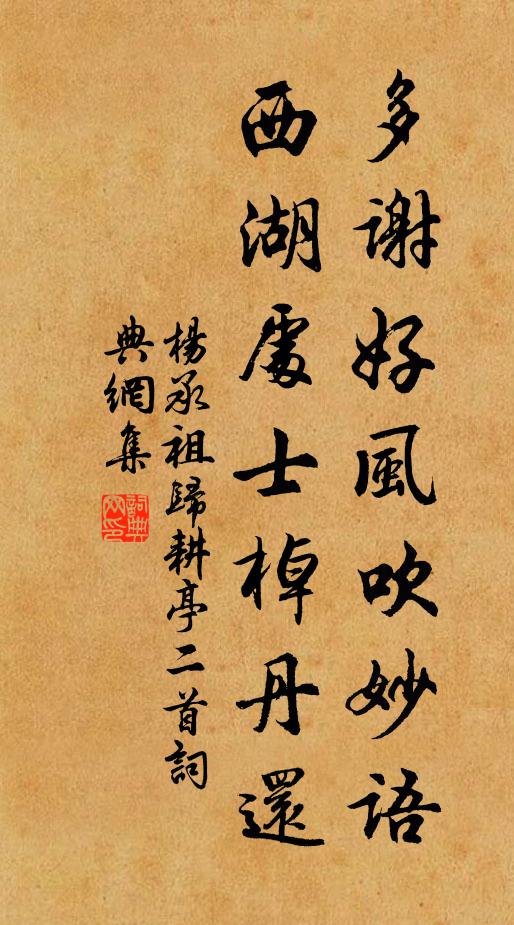 多谢好風吹妙語
西湖處士棹丹還
楊承祖歸耕亭二首詞
典網集
詞典网印